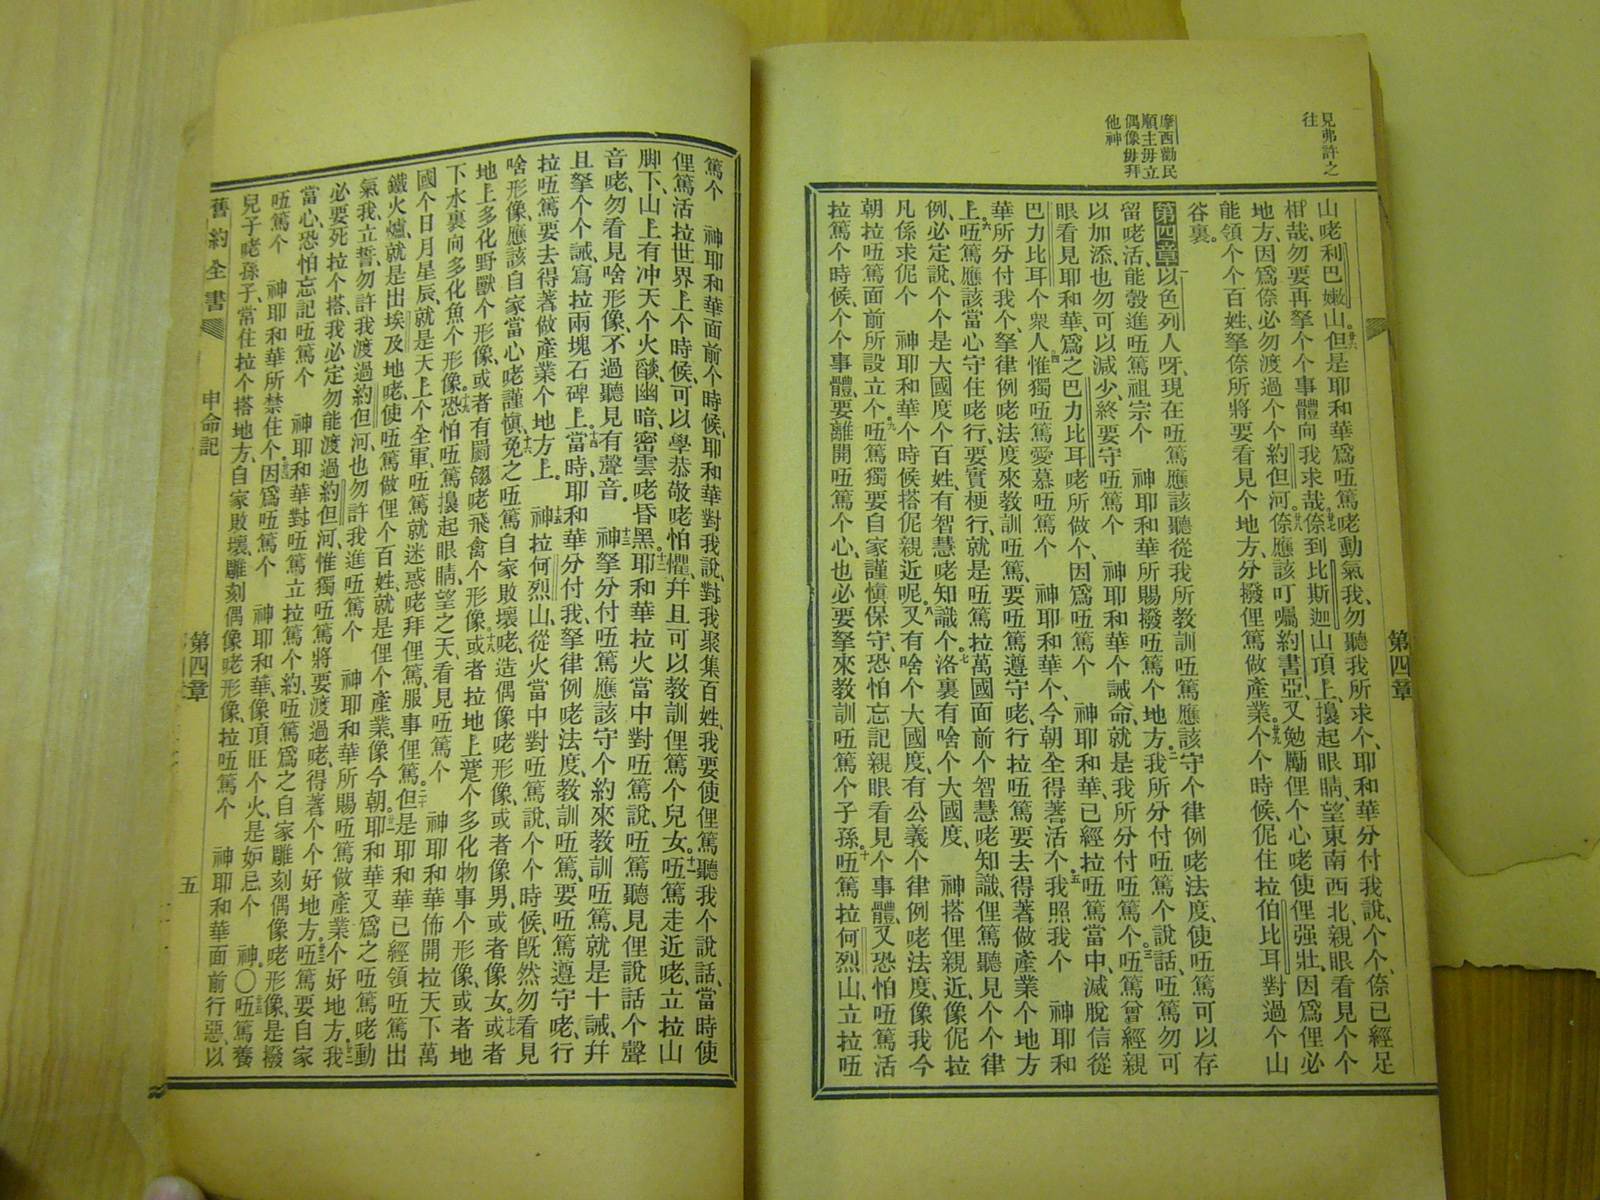 見弗許之
往
摩西勸民
順主毋立
偶像毋拜
他神
第四章
山咾利巴嫩山但是耶和華爲㕶篤咾動氣我勿聽我所求个耶和華分付我說个个㑚已經足
相哉勿要再拏个个事體向我求哉㑚到比斯迦山頂上擡起眼睛望東南西北親眼看見个个
地方因爲㑚必勿渡過个个約但河㑚應該叮囑約書亞又勉勵俚个心咾使俚强壯因爲俚必
能領个个百姓拏㑚所將要看見个地方分撥俚篤做產業个个時候伲住拉伯比耳對過个山
谷裏
第四章以色列人呀現在㕶篤應該聽從我所教訓㕶篤應該守个律例咾法度使㕶篤可以存
留咾活能彀進㕶篤祖宗个 神耶和華所賜撥㕶篤个地方我所分付㕶篤个說話㕶篤勿可
以加添也勿可以減少終要守㕶篤个 神耶和華个誡命就是我所分付㕶篤个㕶篤曾經親
眼看見耶和華爲之巴力比耳咾所做个因爲㕶篤个 神耶和華已經拉㕶篤當中滅脫信從
巴力比耳个衆人惟獨㕶篤愛慕㕶篤个 神耶和華个今朝全得著活个我照我个 神耶和
華所分付我个拏律例咾法度來教訓㕶篤要㕶篤遵守咾行拉㕶篤要去得著做產業个地方
上㕶篤應該當心守住咾行要實梗行就是㕶篤拉萬國面前个智慧咾知識俚篤聽見个个律
例必定說个个是大國度个百姓有智慧咾知識个洛裏有啥个大國度 神搭俚親近像伲拉
凡係求伲个 神耶和華个時候搭伲親近呢又有啥个大國度有公義个律例咾法度像我今
朝拉㕶篤面前所設立个㕶篤獨要自家謹愼保守恐怕忘記親眼看見个事體又恐怕㕶篤活
拉篤个時候个个事體要離開㕶篤个心也必要拏來教訓㕶篤个子孫㕶篤拉何烈山立拉㕶
篤个 神耶和華面前个時候耶和華對我說對我聚集百姓我要使俚篤聽我个說話當時使
俚篤活拉世界上个時候可以學恭敬咾怕懼幷且可以教訓俚篤个兒女㕶篤走近咾立拉山
脚下山上有冲天个火燄幽暗密雲咾昏黑耶和華拉火當中對㕶篤說㕶篤聽見俚說話个聲
音咾勿看見啥形像不過聽見有聲音 神拏分付㕶篤應該守个約來教訓㕶篤就是十誡幷
且拏个个誡寫拉兩塊石碑上當時耶和華分付我拏律例咾法度教訓㕶篤要㕶篤遵守咾行
拉㕶篤要去得著做產業个地方上 神拉何烈山從火當中對㕶篤說个个時候旣然勿看見
啥形像應該自家當心咾謹愼免之㕶篤自家敗壞咾造偶像咾形像或者像男或者像女或者
地上多化野獸个形像或者有翮翎咾飛禽个形像或者拉地上躄个多化物事个形像或者地
下水裏向多化魚个形像恐怕㕶篤擡起眼睛望之天看見㕶篤个 神耶和華佈開拉天下萬
國个日月星辰就是天上个全軍㕶篤就迷惑咾拜俚篤服事俚篤但是耶和華已經領㕶篤出
鐵火爐就是出埃及地咾使㕶篤做俚个百姓就是俚个產業像今朝耶和華又爲之㕶篤咾動
氣我立誓勿許我渡過約但河也勿許我進㕶篤个 神耶和華所賜㕶篤做產業个好地方我
必要死拉个搭我必定勿能渡過約但河惟獨㕶篤將要渡過咾得著个个好地方㕶篤要自家
當心恐怕忘記㕶篤个 神耶和華對㕶篤立拉篤个約㕶篤爲之自家雕刻偶像咾形像是撥
㕶篤个 神耶和華所禁住个因爲㕶篤个 神耶和華像頂旺个火是妬忌个 神〇㕶篤養
兒子咾孫子常住拉个搭地方自家敗壞雕刻偶像咾形像拉㕶篤个 神耶和華面前行惡以
舊約全書 申命記 第四章 五